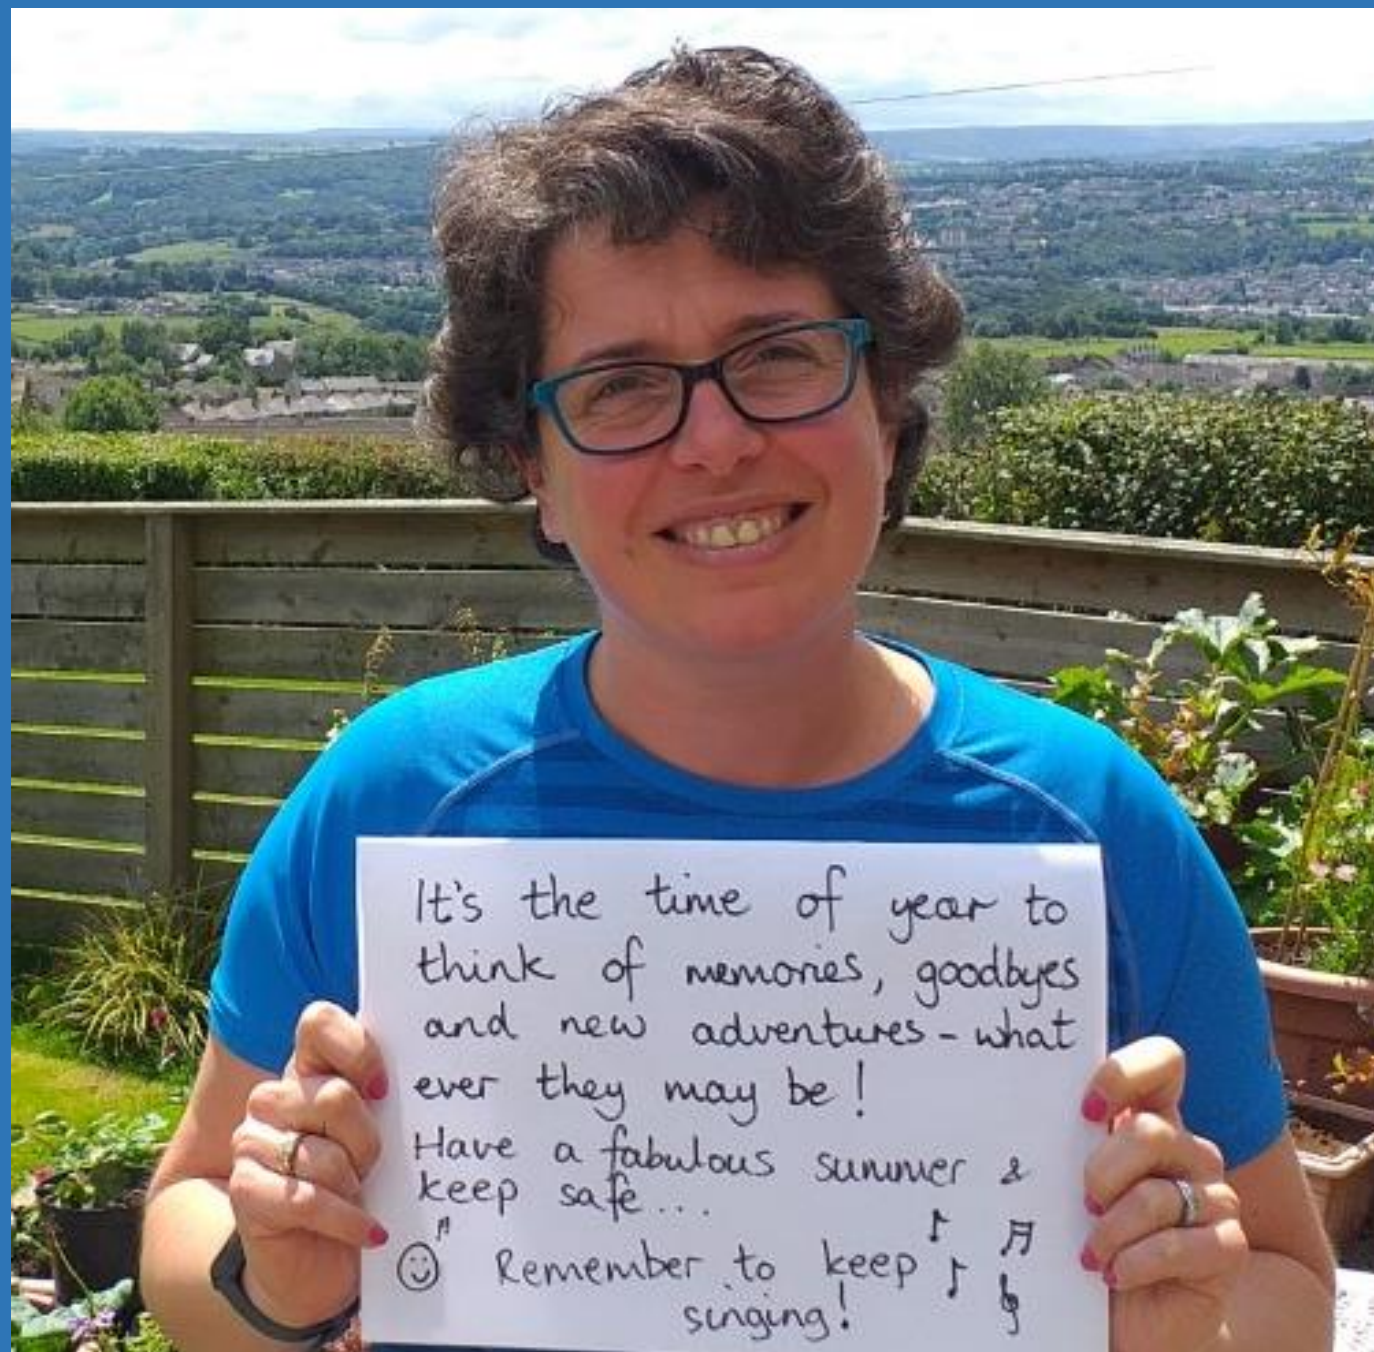 It's the time of year to
think of memories, goodbyes
and new adventures - what
ever they may be!
Have a fabulous summer &
keep safe...
Remember to keep
singing!